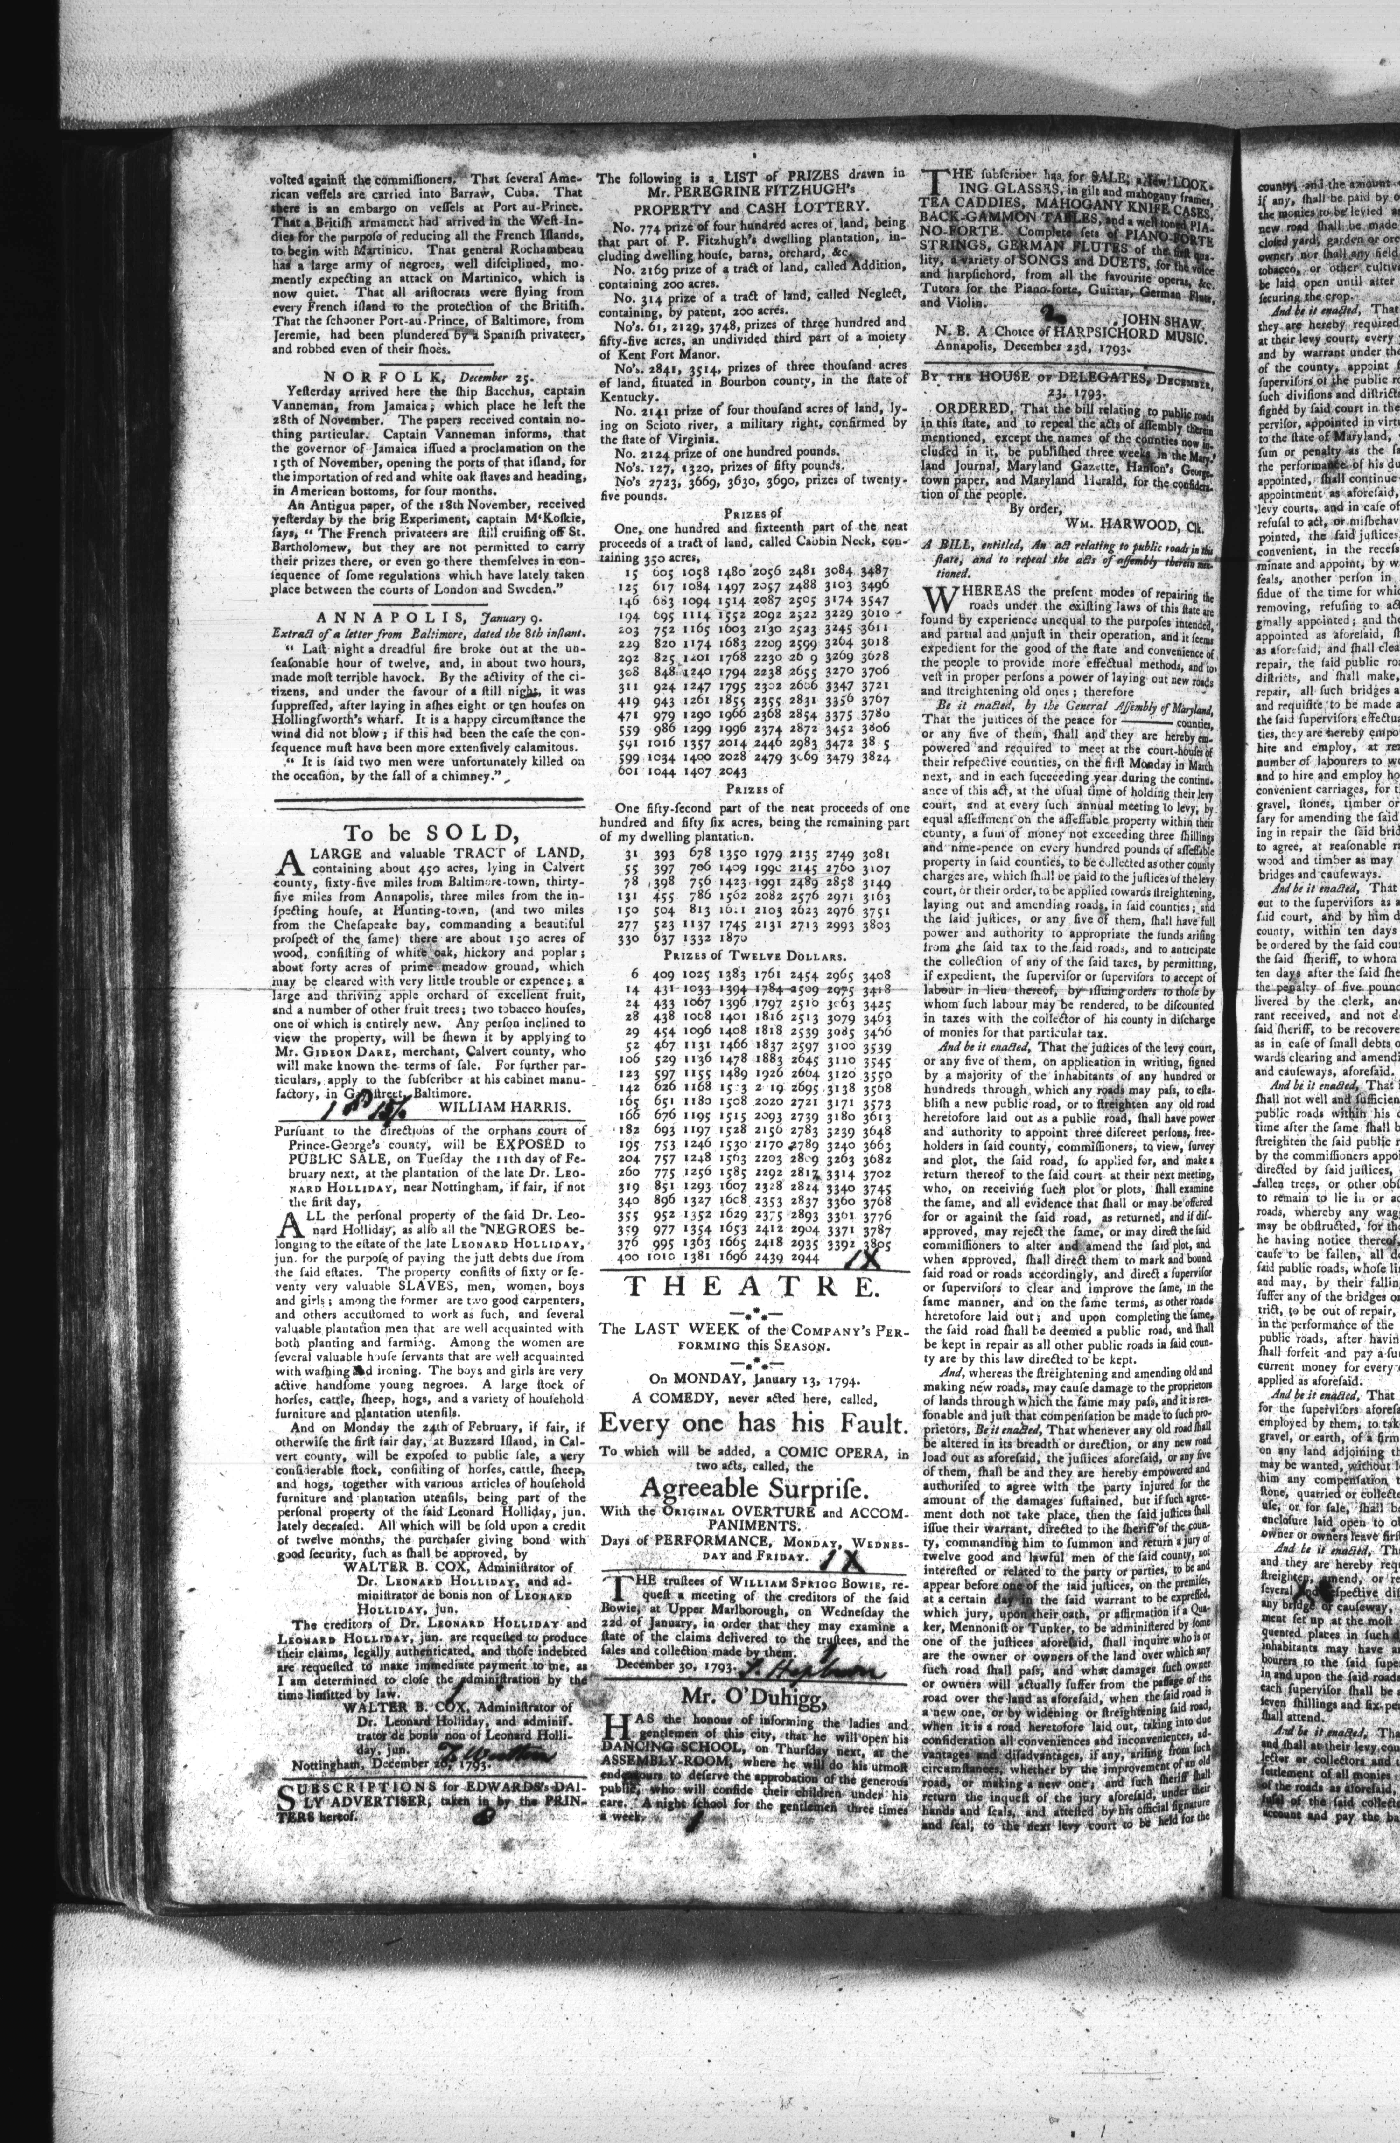 volted against the commissioners. That several Ame-
rican vessels are carried into Barraw, Cuba. That
there is an embargo on vessels at Port au-Prince.
That a British armament had arrived in the West-In-
dies for the purpose of reducing all the French Islands,
to begin with Martinico. That general Rochambeau
has a large army of negroes, well disciplined, mo-
mently expecting an attack on Martinico, which is
now quiet. That all aristocrats were flying from
every French island to the protection of the British.
That the schooner Port-au-Prince, of Baltimore, from
Jeremie, had been plundered by a Spanish privateer,
and robbed even of their shoes.
NORFOLK, December 25.
Yesterday arrived here the ship Bacchus, captain
Vanneman, from Jamaica; which place he left the
28th of November. The papers received contain no-
thing particular. Captain Vanneman informs, that
the governor of Jamaica issued a proclamation on the
15th of November, opening the ports of that island, for
the importation of red and white oak staves and heading,
in American bottoms, for four months.
An Antigua paper, of the 18th November, received
yesterday by the brig Experiment, captain M'Koskie,
says, "The French privateers are still cruising off St.
Bartholomew, but they are not permitted to carry
their prizes there, or even go there themselves in con-
sequence of some regulations which have lately taken
place between the courts of London and Sweden."
ANNAPOLIS, January 9.
Extract of a letter from Baltimore, dated the 8th instant.
"Last night a dreadful fire broke out at the un-
seasonable hour of twelve, and, in about two hours,
made most terrible havock. By the activity of ci-
tizens, and under the favour of a still night, it was
suppressed, after laying in ashes eight or ten houses on
Hollingsworth's wharf. It is a happy circumstance the
wind did not blow; if this had been the case the con-
sequence must have been more extensively calamitous.
"It is said two men were unfortunately killed on
the occasion, by the fall of a chimney."
To be SOLD,
A LARGE and valuable TRACT of LAND,
containing about 450 acres, lying in Calvert
county, sixty-five miles from Baltimore-town, thirty-
five miles from Annapolis, three miles from the in-
specting house, at Hunting-town, (and two miles
from the Chesapeake bay, commanding a beautiful
prospect of the same) there are about 150 acres of
wood, consisting of white oak, hickory and poplar;
about forty acres of prime meadow ground, which
may be cleared with very little trouble or expence; a
large and thriving apple orchard of excellent fruit,
and a number of other fruit trees; two tobacco houses,
one of which is entirely new. Any person inclined to
view the property, will be shewn it by applying to
Mr. GIDEON DARE, merchant, Calvert county, who
will make known the terms of sale. For further par-
ticulars, apply to the subscriber at his cabinet manu-
factory, in street, Baltimore.
WILLIAM HARRIS.
Pursuant to the directions of the orphans court of
Prince-George's county, will be EXPOSED to
PUBLIC SALE, on Tuesday the 11th day of Fe-
bruary next, at the plantation of the late Dr. LEO-
NARD HOLLIDAY, near Nottingham, if fair, if not
the first day,
ALL the personal property of the said Dr. Leo-
nard Holliday, as also all the NEGROES be-
longing to the estate of the late LEONARD HOLLIDAY,
jun. for the purpose of paying the just debts due from
the said estates. The property consists of sixty or se-
venty very valuable SLAVES, men, women, boys
and girls; among the former are two good carpenters,
and others accustomed to work as such, and several
valuable plantation men that are well acquainted with
both planting and farming. Among the women are
several valuable house servants that are well acquainted
with washing and ironing. The boys and girls are very
active handsome young negroes. A large stock of
horses, cattle, sheep, hogs, and a variety of household
furniture and plantation utensils.
And on Monday the 24th of February, if fair, if
otherwise the first fair day, at Buzzard Island, in Cal-
vert county, will be exposed to public sale, a very
considerable stock, consisting of horses, cattle, sheep,
and hogs, together with various articles of household
furniture and plantation utensils, being part of the
personal property of the said Leonard Holliday, jun.
lately deceased. All which will be sold upon a credit
of twelve months, the purchaser giving bond with
good security, such as shall be approved, by
WALTER B. COX, Administrator of
Dr. LEONARD HOLLIDAY, and ad-
ministrator de bonis non of LEONARD
HOLLIDAY, jun.
The creditors of Dr. LEONARD HOLLIDAY and
LEONARD HOLLIDAY, jun. are requested to produce
their claims, legally authenticated, and those indebted
are requested to make immediate payment to me, as
I am determined to close the administration by the
time limitted by law.
WALTER B. COX, Administrator of
Dr. Leonard Holliday, and adminis-
trator de bonis non of Leonard Holli-
day, jun.
Nottingham, December 26, 1793.
SUBSCRIPTIONS for EDWARDS's DAI-
LY ADVERTISER, taken in by the PRIN-
TERS hereof.
The following is a LIST of PRIZES drawn in
Mr. PEREGRINE FITZHUGH's
PROPERTY and CASH LOTTERY.
No. 774 prize of four hundred acres of land, being
that part of P. Fitzhugh's dwelling plantation, in-
cluding dwelling house, barns, orchard, &c.
No. 2169 prize of a tract of land, called Addition,
containing 200 acres.
No. 314 prize of a tract of land, called Neglect,
containing, by patent, 200 acres.
No's. 61, 2129, 3748, prizes of three hundred and
fifty-five acres, an undivided third part of a moiety
of Kent Fort Manor.
No's. 2841, 3514, prizes of three thousand acres
of land, situated in Bourbon county, in the state of
Kentucky.
No. 2141 prize of four thousand acres of land, ly-
ing on Scioto river, a military right, confirmed by
the state of Virginia.
No. 2124 prize of one hundred pounds.
No's. 127, 1320, prizes of fifty pounds.
No's 2723, 3669, 3630, 3690, prizes of twenty-
five pounds.
PRIZES of
One, one hundred and sixteenth part of the neat
proceeds of a tract of land, called Cabbin Neck, con-
taining 350 acres,
15 605 1058 1480 2056 2481 3084 3487
125 617 1084 1497 2057 2488 3103 3496
146 683 1094 1514 2087 2505 3174 3547
194 695 1114 1552 2092 2522 3229 3610
203 752 1165 1603 2130 2523 3245 3611
229 820 1174 1683 2209 2599 3264 3618
292 825 1201 1768 2230 26 9 3269 3678
308 848 1240 1794 2238 2655 3270 3706
311 924 1247 1795 2302 2666 3347 3721
419 943 1261 1855 2355 2831 3356 3767
471 979 1290 1966 2368 2854 3375 3780
559 986 1299 1996 2374 2872 3452 3806
591 1016 1357 2014 2446 2983 3472 38 5
599 1034 1400 2028 2479 3069 3479 3824
601 1044 1407 2043
PRIZES of
One fifty-second part of the neat proceeds of one
hundred and fifty six acres, being the remaining part
of my dwelling plantation.
31 393 678 1350 1979 2135 2749 3081
55 397 706 1409 1990 2145 2760 3107
78 398 756 1423 1991 2489 2858 3149
131 455 786 1562 2082 2576 2971 3163
150 504 813 1611 2103 2623 2976 3751
277 523 1137 1745 2131 2713 2993 3803
330 637 1332 1870
PRIZES of TWELVE DOLLARS.
6 409 1025 1383 1761 2454 2965 3408
14 431 1033 1394 1784 2509 2975 3418
24 433 1067 1396 1797 2510 3063 3425
28 438 1068 1401 1816 2513 3079 3463
29 454 1096 1408 1818 2539 3085 3456
52 467 1131 1466 1837 2597 3100 3539
106 529 1136 1478 1883 2645 3110 3545
123 597 1155 1489 1926 2664 3120 3550
142 626 1168 15 3 2 19 2695 3138 3568
165 651 1180 1508 2020 2721 3171 3573
166 676 1195 1515 2093 2739 3180 3613
182 693 1197 1528 2156 2783 3239 3648
195 753 1246 1530 2170 2789 3240 3663
204 757 1248 1563 2203 2809 3263 3682
260 775 1256 1585 2292 2817 3314 3702
319 851 1293 1607 2328 2824 3340 3745
340 896 1327 1608 2353 2837 3360 3768
355 952 1352 1629 2375 2893 3361 3776
359 977 1354 1653 2412 2904 3371 3787
376 995 1363 1665 2418 2935 3392 3805
400 1010 1381 1696 2439 2944
1X
THEATRE.
The LAST WEEK of the COMPANY'S PER-
FORMING this SEASON.
On MONDAY, January 13, 1794.
A COMEDY, never acted here, called,
Every one has his Fault.
To which will be added, a COMIC OPERA, in
two acts, called, the
Agreeable Surprise.
With the ORIGINAL OVERTURE and ACCOM-
PANIMENTS.
Days of PERFORMANCE, MONDAY, WEDNES-
DAY and FRIDAY.
1X
THE trustees of WILLIAM SPRIGG BOWIE, re-
quest a meeting of the creditors of the said
Bowie, at Upper Marlborough, on Wednesday the
22d of January, in order that they may examine a
state of the claims delivered to the trustees, and the
sales and collection made by them.
December 30, 1793.
Mr. O'Duhigg,
HAS the honour of informing the ladies and
gentlemen of this city, that he will open his
DANCING SCHOOL, on Thursday next, at the
ASSEMBLY-ROOM, where he will do his utmost
endeavours to deserve the approbation of the generous
public, who will confide their children under his
care. A night school for the gentlemen three times
a week.
THE subscriber has for SALE, a few LOOK-
ING GLASSES, in gilt and mahogany frames,
TEA CADDIES, MAHOGANY KNIFE CASES,
BACK-GAMMON TABLES, and a well toned PIA-
NO-FORTE. Complete sets of PIANO-FORTE
STRINGS, GERMAN FLUTES of the first qua-
lity, a variety of SONGS and DUETS, for the voice
and harpsichord, from all the favourite operas, &c.
Tutors for the Piano-forte, Guittar, German Flute,
and Violin.
JOHN SHAW.
N. B. A Choice of HARPSICHORD MUSIC.
Annapolis, December 23d, 1793.
BY THE HOUSE OF DELEGATES, DECEMBER,
23, 1793.
ORDERED, That the bill relating to public roads
in this state, and to repeal the acts of assembly therein
mentioned, except the names of the counties now in-
cluded in it, be published three weeks in the Mary-
land Journal, Maryland Gazette, Hanson's George-
town paper, and Maryland Herald, for the considera-
tion of the people.
By order,
WM. HARWOOD, Clk.
A BILL, entitled, An act relating to public roads in this
state, and to repeal the acts of assembly therein men-
tioned.
WHEREAS the present modes of repairing the
roads under the existing laws of this state are
found by experience unequal to the purposes intended,
and partial and unjust in their operation, and it seems
expedient for the good of the state and convenience of
the people to provide more effectual methods, and to
vest in proper persons a power of laying out new roads
and streightening old ones; therefore
Be it enacted, by the General Assembly of Maryland,
That the justices of the peace for ——— counties,
or any five of them, shall and they are hereby em-
powered and required to meet at the court-houses of
their respective counties, on the first Monday in March
next, and in each succeeding year during the continu-
ance of this act, at the usual time of holding their levy
court, and at every such annual meeting to levy, by
equal assessment on the assessable property within their
county, a sum of money not exceeding three shillings
and nine-pence on every hundred pounds of assessable
property in said counties, to be collected as other county
charges are, which shall be paid to the justices of the levy
court, or their order, to be applied towards streightening,
laying out and amending roads, in said counties; and
the said justices, or any five of them, shall have full
power and authority to appropriate the funds arising
from the said tax to the said roads, and to anticipate
the collection of any of the said taxes, by permitting,
if expedient, the supervisor or supervisors to accept of
labour in lieu thereof, by issuing orders to those by
whom such labour may be rendered, to be discounted
in taxes with the collector of his county in discharge
of monies for that particular tax.
And be it enacted, That the justices of the levy court,
or any five of them, on application in writing, signed
by a majority of the inhabitants of any hundred or
hundreds through which any roads may pass, to esta-
blish a new public road, or to streighten any old road
heretofore laid out as a public road, shall have power
and authority to appoint three discreet persons, free-
holders in said county, commissioners, to view, survey
and plot, the said road, so applied for, and make a
return thereof to the said court at their next meeting,
who, on receiving such plot or plots, shall examine
the same, and all evidence that shall or may be offered
for or against the said road, as returned, and if dis-
approved, may reject the same, or may direct the said
commissioners to alter and amend the said plot, and
when approved, shall direct them to mark and bound
said road or roads accordingly, and direct a supervisor
or supervisors to clear and improve the same, in the
same manner, and on the same terms, as other roads
heretofore laid out; and upon completing the same,
the said road shall be deemed a public road, and shall
be kept in repair as all other public roads in said coun-
ty are by this law directed to be kept.
And, whereas the streightening and amending old and
making new roads, may cause damage to the proprietors
of lands through which the same may pass, and it is rea-
sonable and just that compensation be made to such pro-
prietors, Be it enacted, That whenever any old road shall
be altered in its breadth or direction, or any new road
load out as aforesaid, the justices aforesaid, or any five
of them, shall be and they are hereby empowered and
authorised to agree with the party injured for the
amount of the damages sustained, but if such agree-
ment doth not take place, then the said justices shall
issue their warrant, directed to the sheriff of the coun-
ty, commanding him to summon and return a jury of
twelve good and lawful men of the said county, not
interested or related to the party or parties, to be and
appear before one of the said justices, on the premises,
at a certain day in the said warrant to be expressed,
which jury, upon their oath, or affirmation if a Qua-
ker, Mennonist or Tunker, to be administered by some
one of the justices aforesaid, shall inquire who is or
are the owner or owners of the land over which any
such road shall pass, and what damages such owner
or owners will actually suffer from the passage of the
road over the land as aforesaid, when the said road is
a new one, or by widening or streightening said road,
when it is a road heretofore laid out, taking into due
consideration all conveniences and inconveniences, ad-
vantages and disadvantages, if any, arising from such
circumstances, whether by the improvement of an old
road, or making a new one; and such sheriff shall
return the inquest of the jury aforesaid, under their
hands and seals, and attested by his official signature
and seal, to the next levy court to be held for the
county, and the amount
if any, shall be paid by
the monies to be levied
new road shall be made
closed yard, garden or
owner, nor shall any field
tobacco, or other
be laid open until after
securing the crop.
And be it enacted, That
they are hereby required
at their levy court, every
and by warrant under the
of the county, appoint
supervisors of the public
such divisions and
signed by said court in the
pervisor, appointed in
to the state of Maryland,
sum or penalty as the
the performance of his
appointed, shall continue
appointment as aforesaid,
levy courts, and in case of
refusal to act, or
pointed, the said justices
convenient, in the
minate and appoint, by
seals, another person in
sidue of the time for
removing, refusing to
ginally appointed; and the
appointed as aforesaid,
as aforesaid, and shall
repair, the said public
districts, and shall make,
repair, all such bridges
and requisite to be made
the said supervisors
ties, they are hereby
hire and employ, at
number of labourers to
and to hire and employ
convenient carriages, for
gravel, stones, timber or
sary for amending the said
ing in repair the said
to agree, at reasonable
wood and timber as may
bridges and causeways.
And be it enacted, That
out to the supervisors
said court, and by him
county, within ten days
be ordered by the said
the said sheriff, to whom
ten days after the said
the penalty of five
livered by the clerk, and
rant received, and not
said sheriff, to be
as in case of small debts
wards clearing and
and causeways, aforesaid.
And be it enacted, That
shall not well and
public roads within his
time after the same shall
streighten the said public
by the commissioners
directed by said justices,
fallen trees, or other
to remain to lie in or
roads, whereby any
may be obstructed, for the
he having notice thereof,
cause to be fallen, all
said public roads, whose
and may, by their
suffer any of the bridges
trict, to be out of repair,
in the performance of the
public roads, after
shall forfeit and pay a
current money for every
applied as aforesaid.
And be it enacted, That
for the supervisors
employed by them, to
gravel, or earth, of a
on any land adjoining
may be wanted, without
him any compensation
stone, quarried or
use, or for sale, shall
enclosure laid open to
owner or owners leave
And be it enacted,
and they are hereby
streighten, amend, or
several and respective
any bridge or causeway,
ment set up at the
quented places in such
inhabitants may have
bourers to the said
in and upon the said roads
each supervisor shall be
seven shillings and
shall attend.
And be it enacted,
and shall at their levy
lector or collectors and
settlement of all monies
of the roads as aforesaid.
of the said
account and pay the